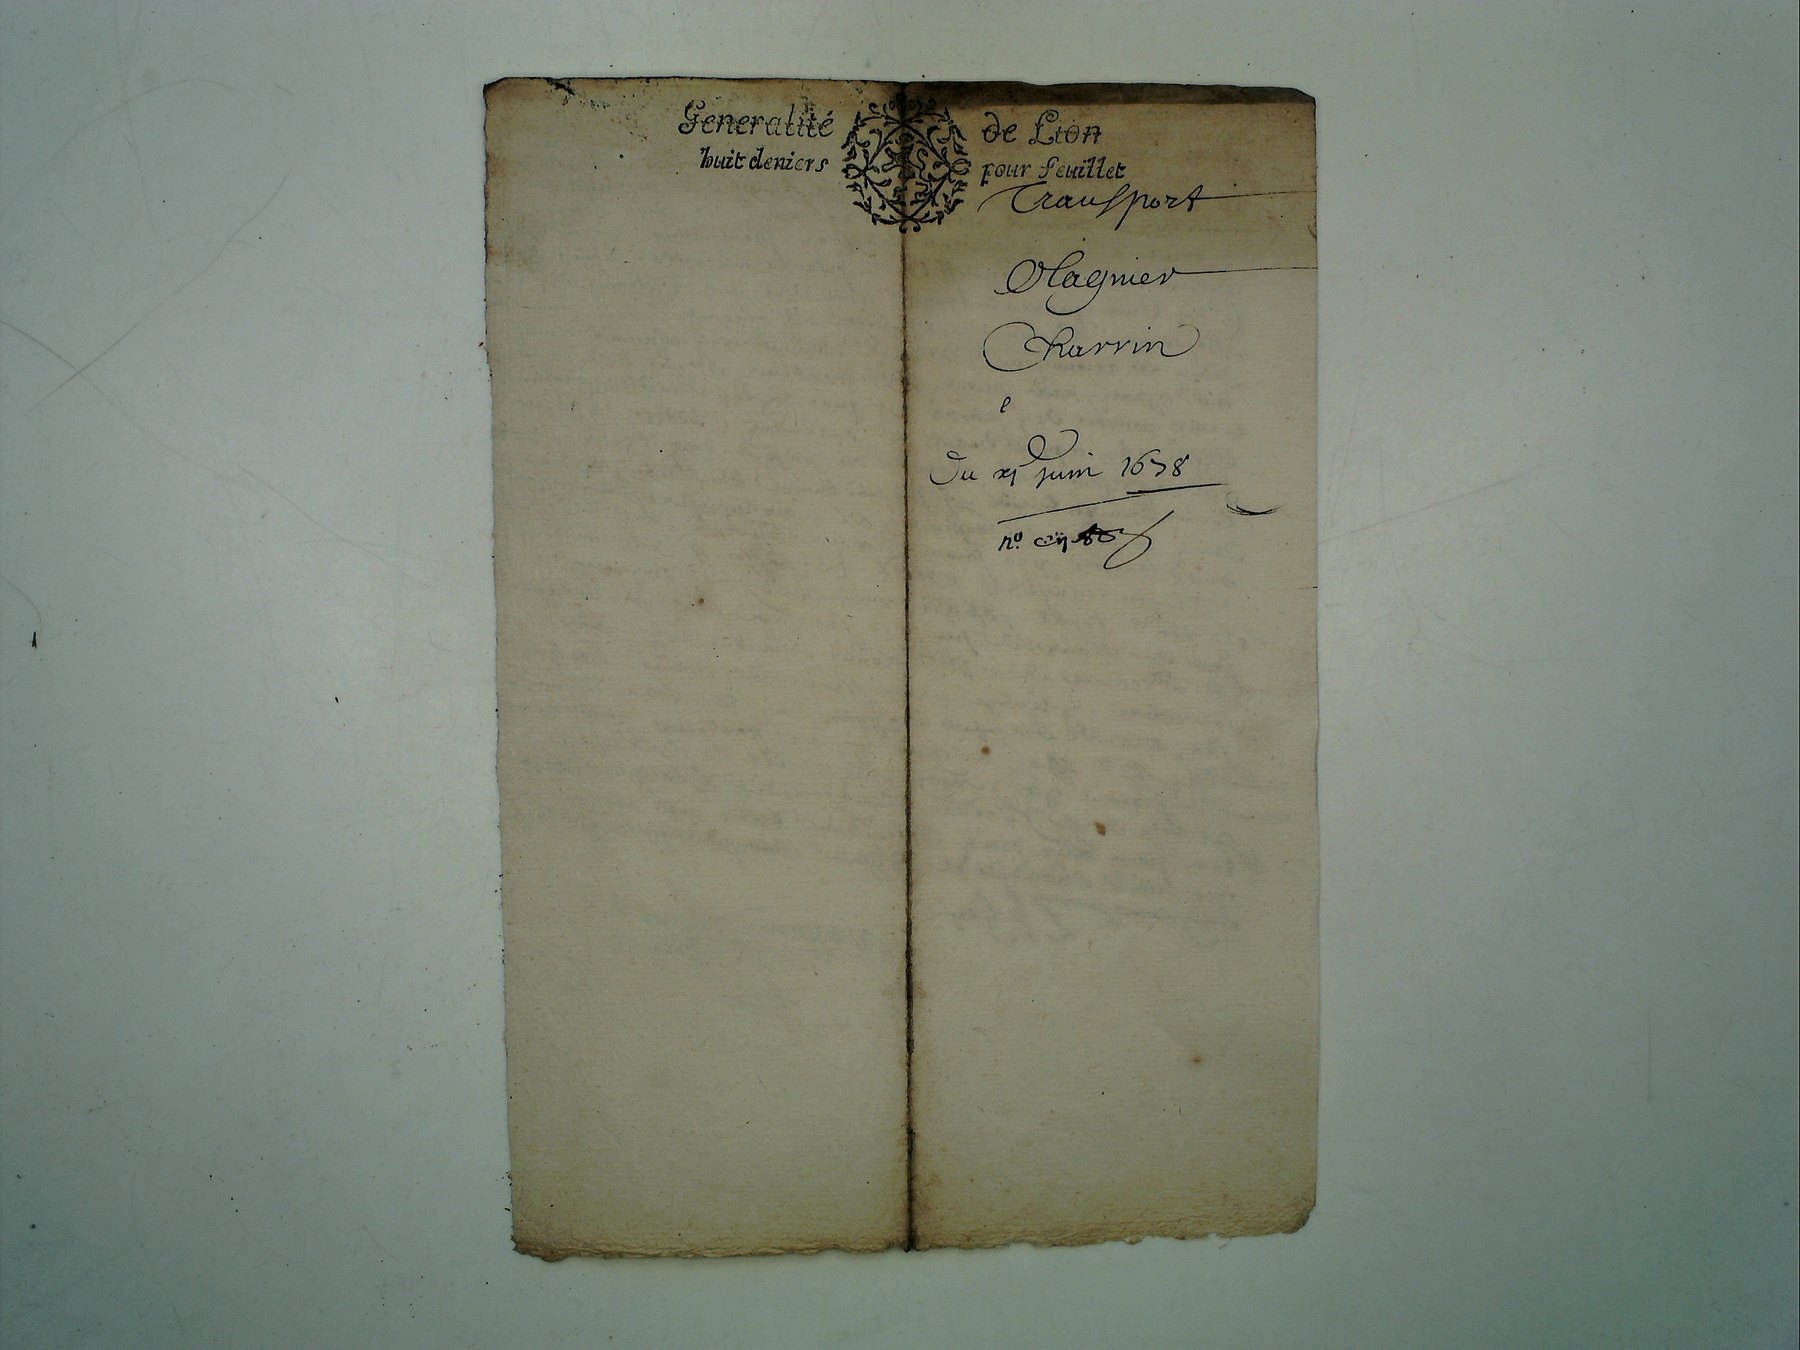 Generalité de Lion
huit deniers pour feuillet
Transport
Olagnier
Charrin
e
Du xj juin 1678
n.º cij